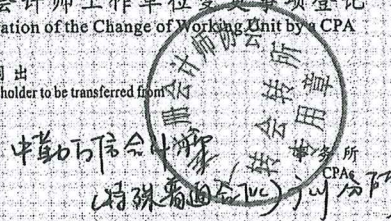 会计师工作单位变更事项登记
ation of the Change of Working Unit by a CPA
出
holder to be transferred from
册会计师协会
转会转所
专用章
中勤万信会计师
务所
CPAs
(特殊普通合伙) 分所